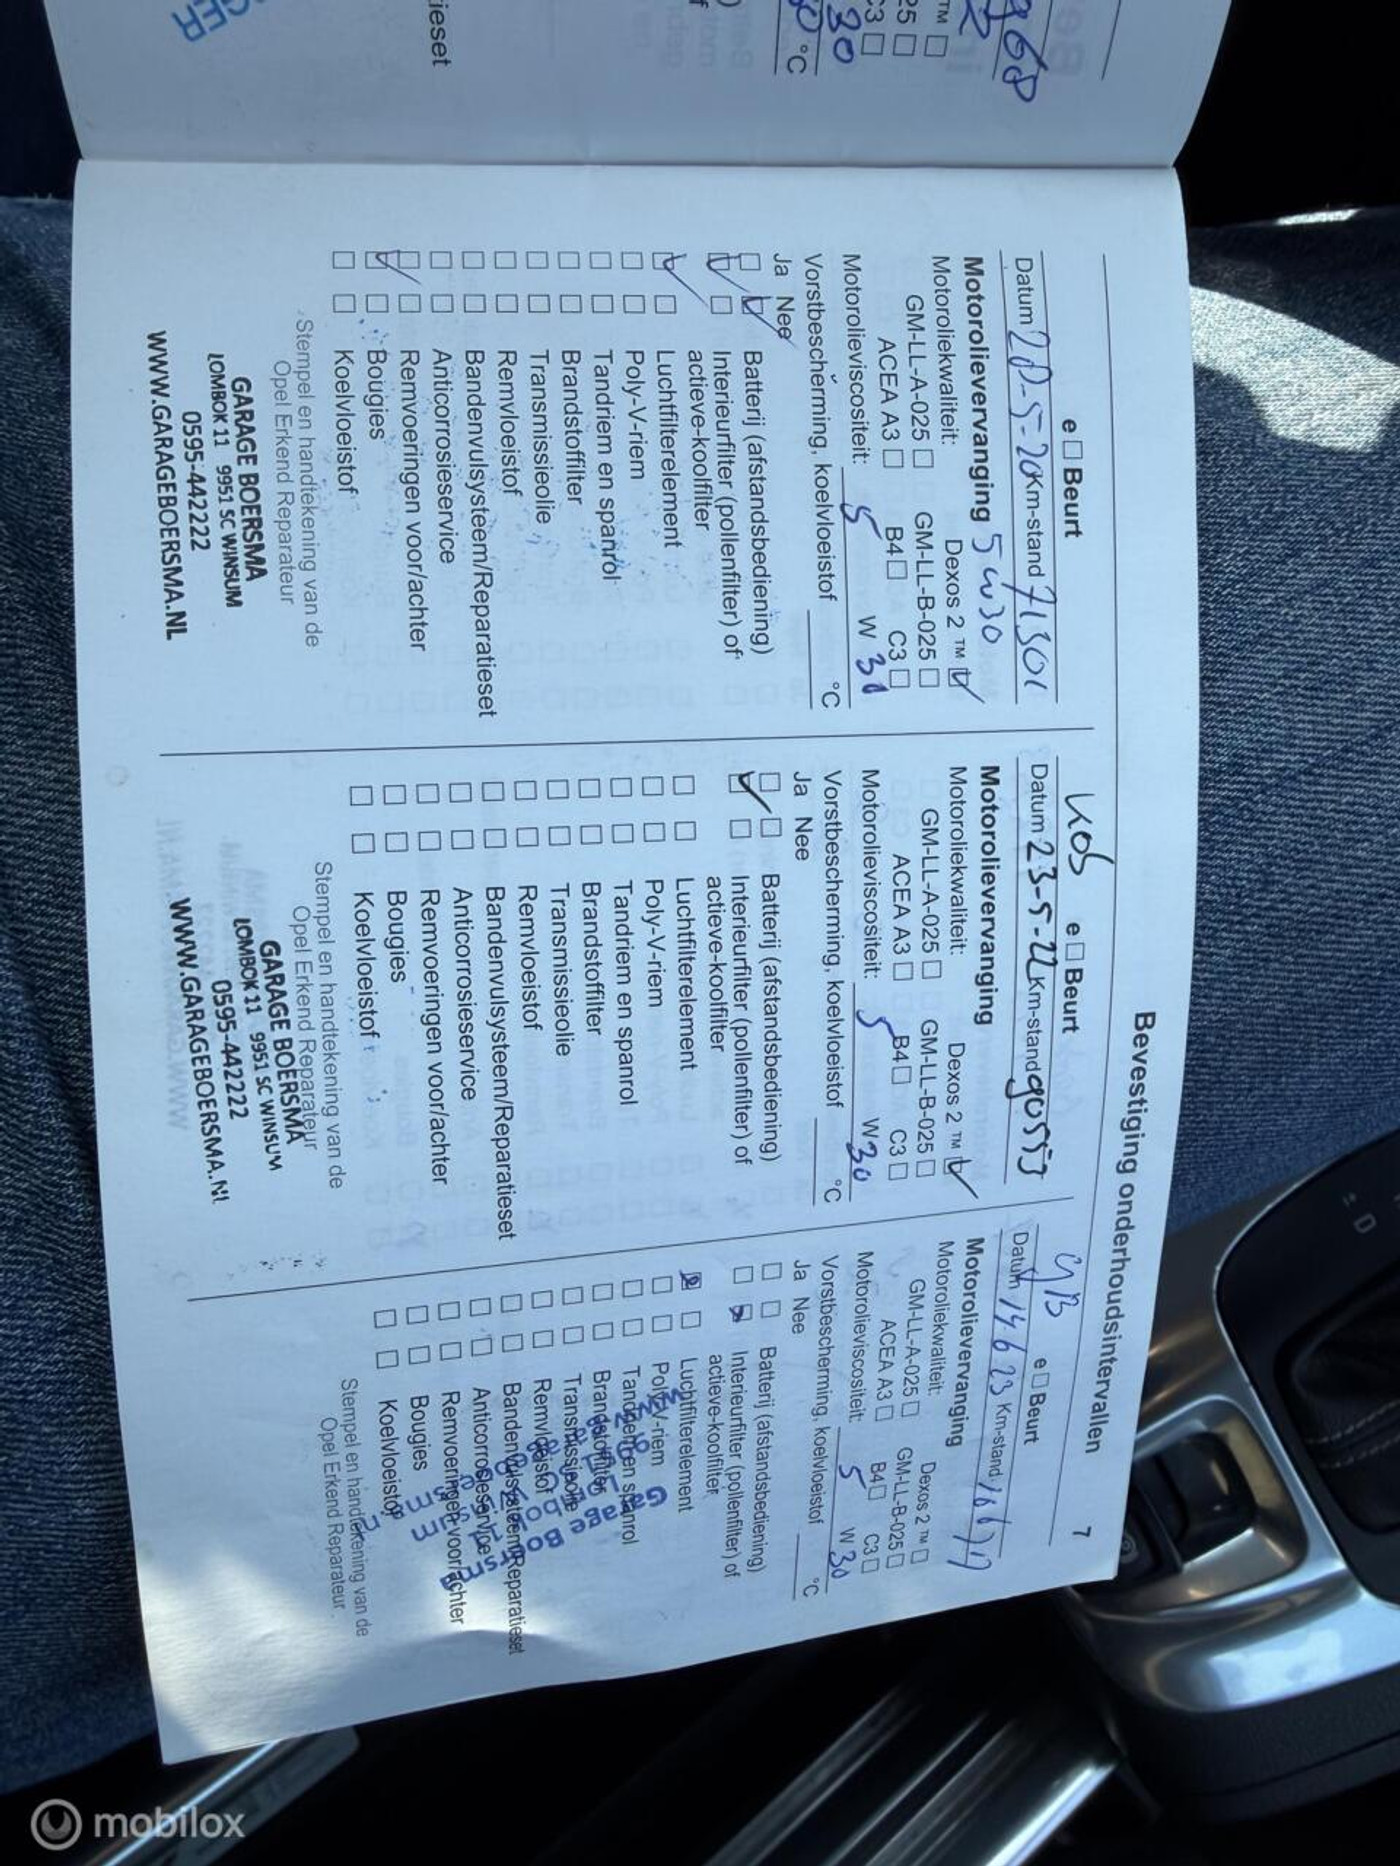 Bevestiging onderhoudsintervallen 7
e ☐ Beurt
Datum 28-5-20 Km-stand 71301
Motorolievervanging 5W30
Motoroliekwaliteit: Dexos 2 ™ ☑
GM-LL-A-025 ☐ GM-LL-B-025 ☐
ACEA A3 ☐ B4 ☐ C3 ☐
Motorolieviscositeit: 5 W 30
Vorstbescherming, koelvloeistof °C
Ja Nee
☐ ☑ Batterij (afstandsbediening)
☑ ☐ Interieurfilter (pollenfilter) of
actieve-koolfilter
☑ ☐ Luchtfilterelement
☐ ☐ Poly-V-riem
☐ ☐ Tandriem en spanrol
☐ ☐ Brandstoffilter
☐ ☐ Transmissieolie
☐ ☐ Remvloeistof
☐ ☐ Bandenvulsysteem/Reparatieset
☐ ☐ Anticorrosieservice
☐ ☐ Remvoeringen voor/achter
☑ ☐ Bougies
☐ ☐ Koelvloeistof
Stempel en handtekening van de
Opel Erkend Reparateur
GARAGE BOERSMA
LOMBOK 11 9951 SC WINSUM
0595-442222
WWW.GARAGEBOERSMA.NL
e ☐ Beurt
Datum 23-5-22 Km-stand 90553
Motorolievervanging
Motoroliekwaliteit: Dexos 2 ™ ☑
GM-LL-A-025 ☐ GM-LL-B-025 ☐
ACEA A3 ☐ B4 ☐ C3 ☐
Motorolieviscositeit: 5 W 30
Vorstbescherming, koelvloeistof °C
Ja Nee
☐ ☐ Batterij (afstandsbediening)
☑ ☐ Interieurfilter (pollenfilter) of
actieve-koolfilter
☐ ☐ Luchtfilterelement
☐ ☐ Poly-V-riem
☐ ☐ Tandriem en spanrol
☐ ☐ Brandstoffilter
☐ ☐ Transmissieolie
☐ ☐ Remvloeistof
☐ ☐ Bandenvulsysteem/Reparatieset
☐ ☐ Anticorrosieservice
☐ ☐ Remvoeringen voor/achter
☐ ☐ Bougies
☐ ☐ Koelvloeistof
Stempel en handtekening van de
Opel Erkend Reparateur
GARAGE BOERSMA
LOMBOK 11 9951 SC WINSUM
0595-442222
WWW.GARAGEBOERSMA.NL
e ☐ Beurt
Datum 14-6-23 Km-stand
Motorolievervanging
Motoroliekwaliteit: Dexos 2 ™ ☐
GM-LL-A-025 ☐ GM-LL-B-025 ☐
ACEA A3 ☐ B4 ☐ C3 ☐
Motorolieviscositeit: 5 W 30
Vorstbescherming, koelvloeistof °C
Ja Nee
☐ ☐ Batterij (afstandsbediening)
☐ ☑ Interieurfilter (pollenfilter) of
actieve-koolfilter
☑ ☐ Luchtfilterelement
☐ ☐ Poly-V-riem
☐ ☐ Tandriem en spanrol
☐ ☐ Brandstoffilter
☐ ☐ Transmissieolie
☐ ☐ Remvloeistof
☐ ☐ Bandenvulsysteem/Reparatieset
☐ ☐ Anticorrosieservice
☐ ☐ Remvoeringen voor/achter
☐ ☐ Bougies
☐ ☐ Koelvloeistof
Stempel en handtekening van de
Opel Erkend Reparateur
Garage Boersma
mobilox